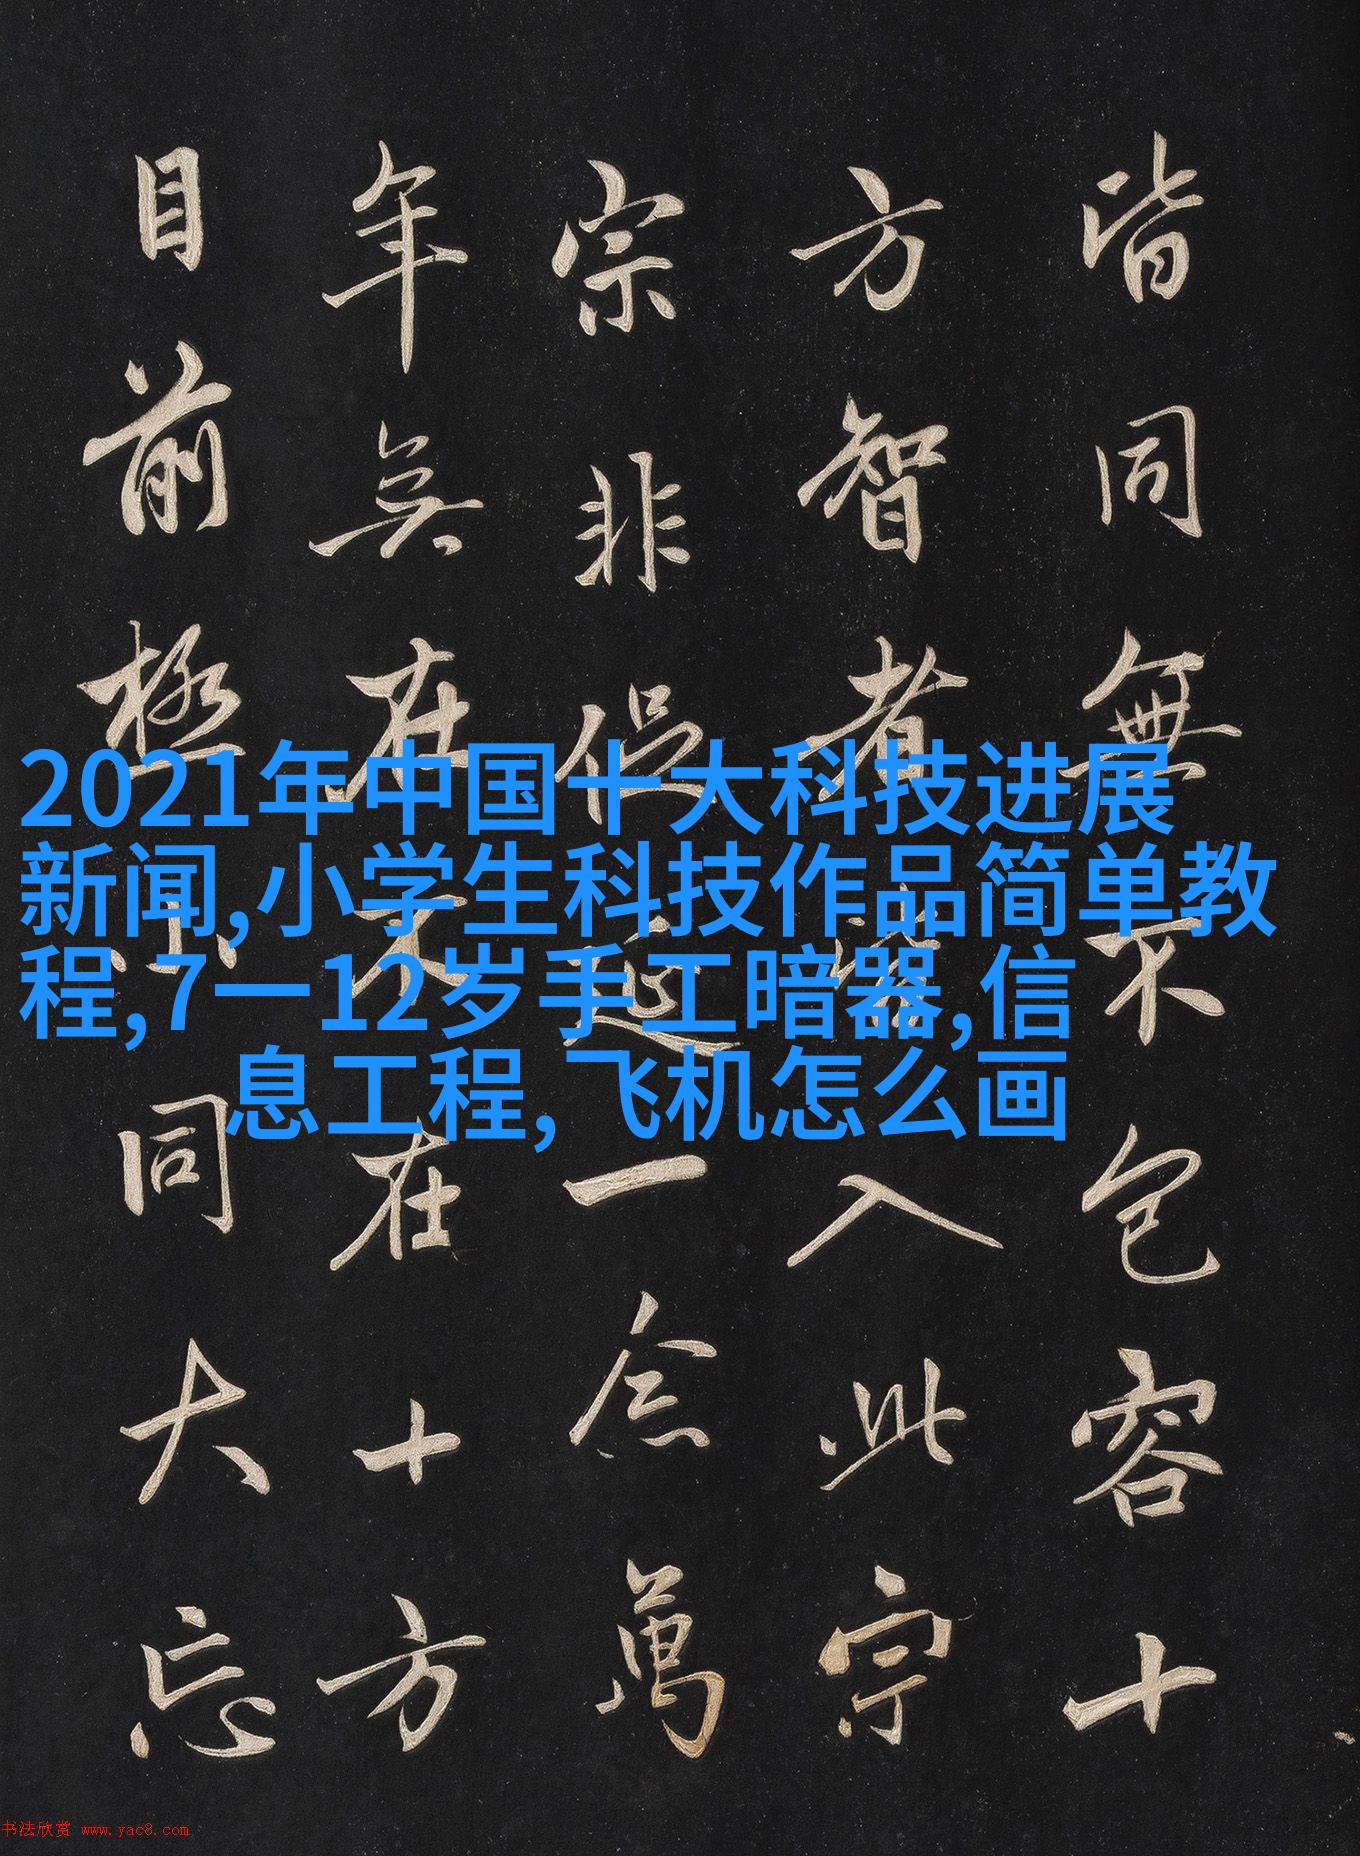 皆同無不包容十
方智者皆入此宗
宗非促延一念萬
年無在不在十方
目前極小同大忘
2021年中国十大科技进展
新闻,小学生科技作品简单教
程,7一12岁手工暗器,信
息工程, 飞机怎么画
书法欣赏 www.yac8.com